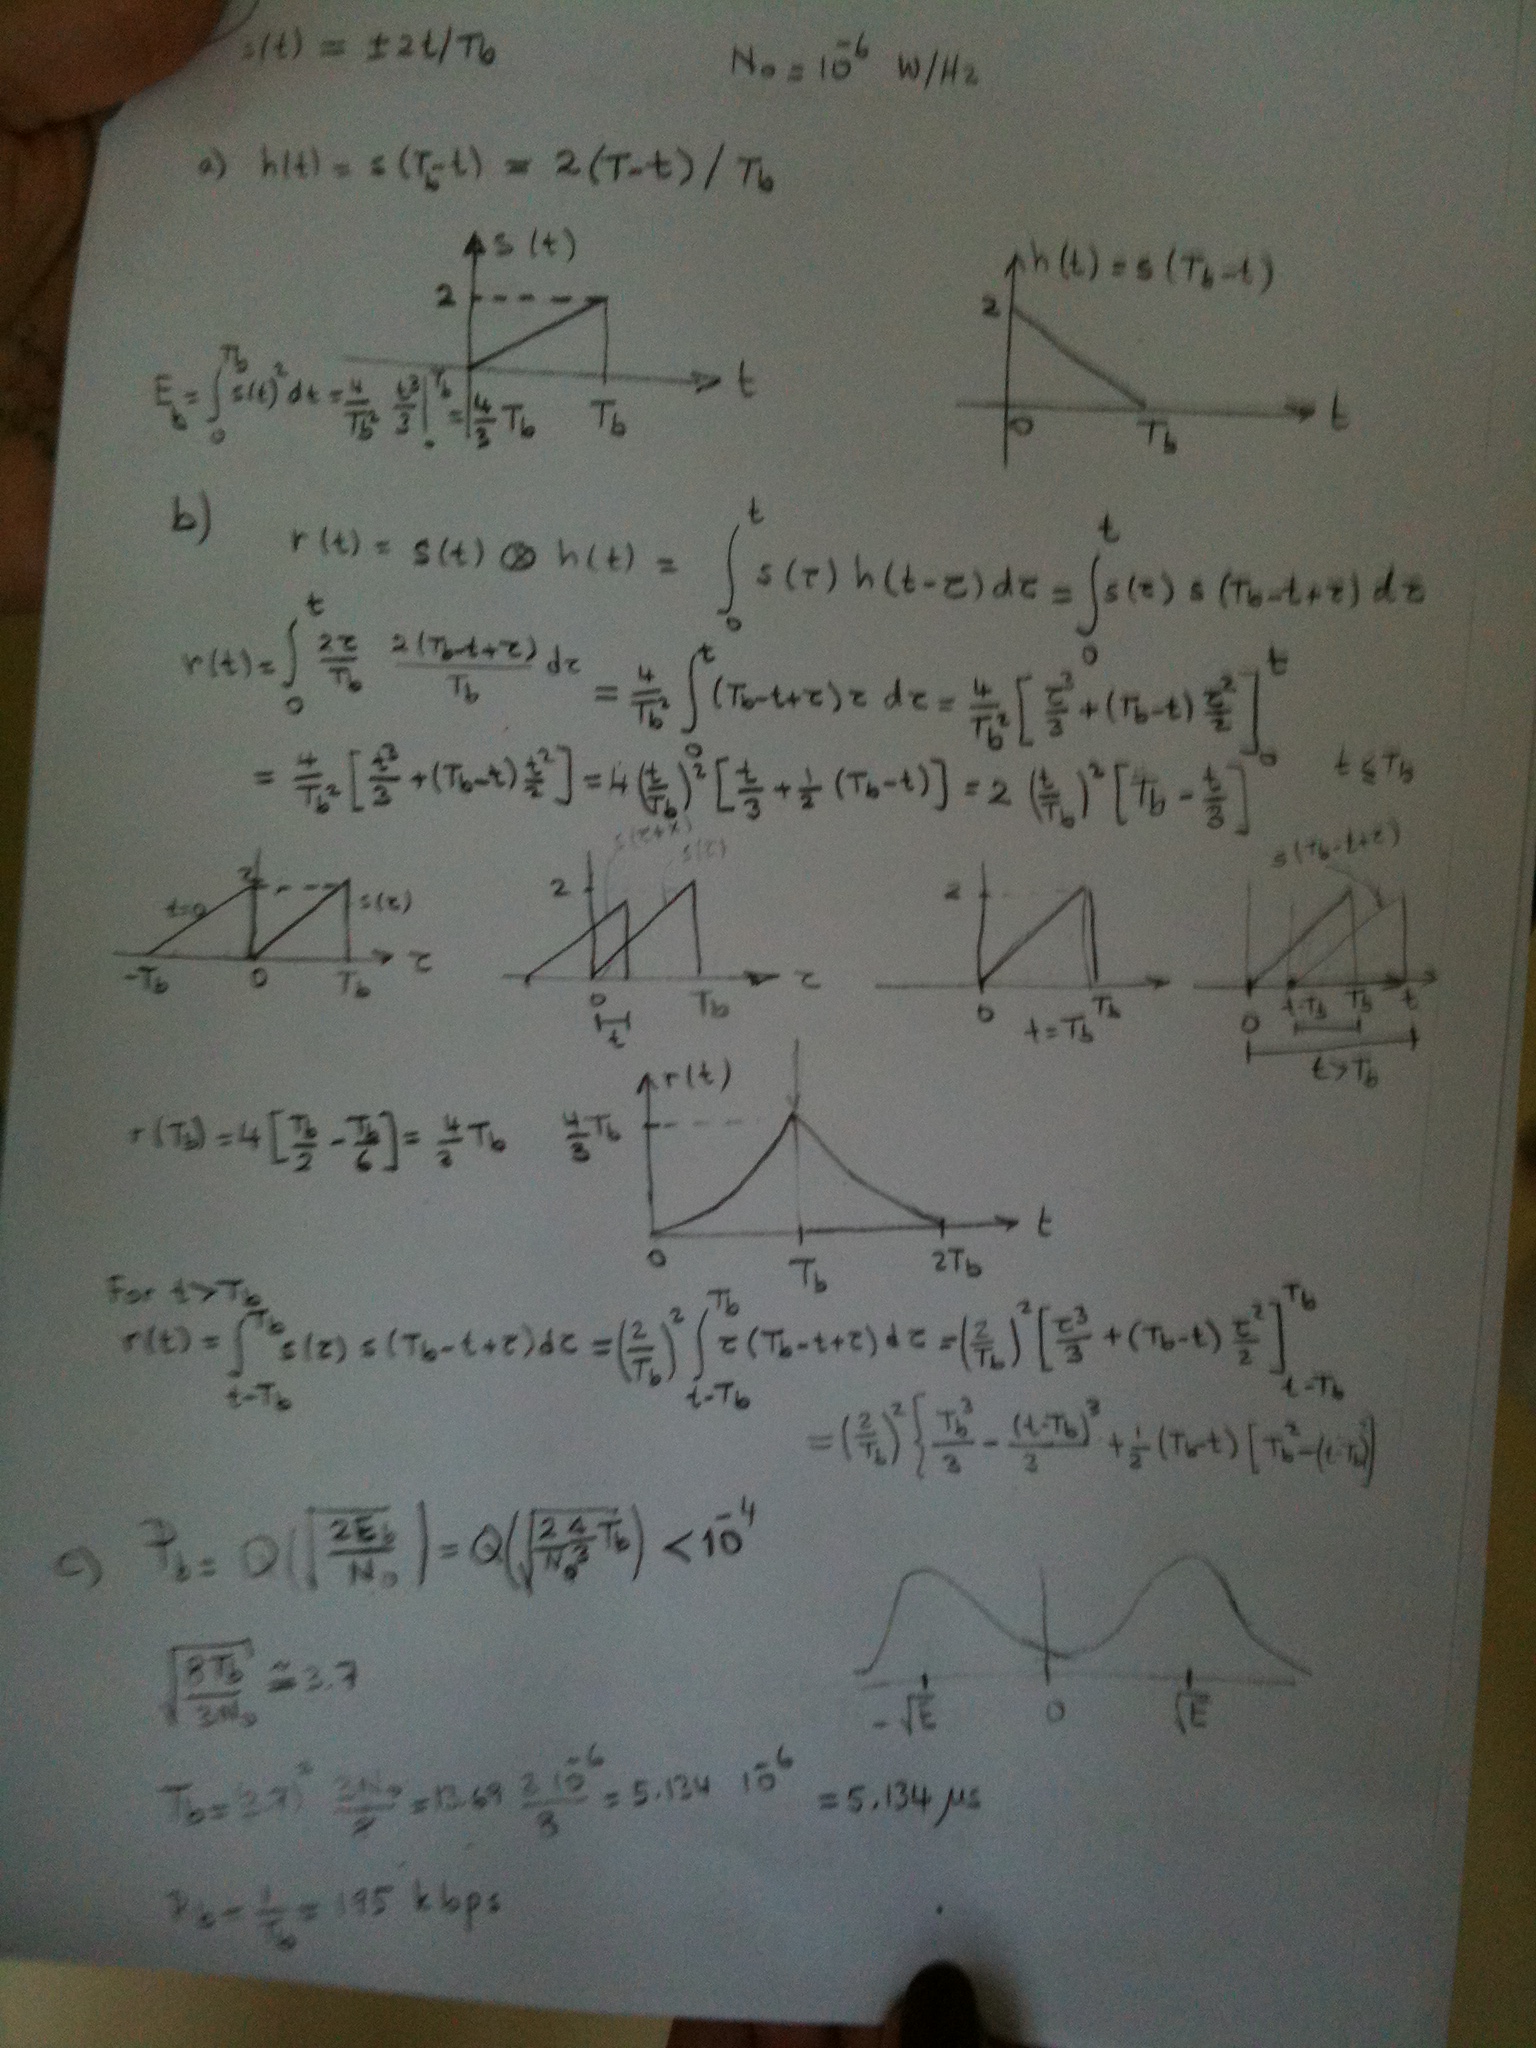 s(t) = ±2t/Tb
N₀ = 10⁻⁶ W/Hz
a) h(t) = s(Tb-t) = 2(T-t)/Tb
s(t)
2
t
Tb
h(t) = s(Tb-t)
2
0
Tb
t
Eb = ∫₀^Tb s(t)² dt = 4/Tb² t³/3 |₀^Tb = 4/3 Tb
b)
r(t) = s(t) ⊗ h(t) = ∫₀^t s(τ) h(t-τ) dτ = ∫₀^t s(τ) s(Tb-t+τ) dτ
r(t) = ∫₀^t 2τ/Tb 2(Tb-t+τ)/Tb dτ = 4/Tb² ∫₀^t (Tb-t+τ)τ dτ = 4/Tb² [τ³/3 + (Tb-t) τ²/2]₀^t
= 4/Tb² [t³/3 + (Tb-t) t²/2] = 4 (t/Tb)² [t/3 + 1/2 (Tb-t)] = 2 (t/Tb)² [Tb - t/3] t ≤ Tb
t=0
2
s(τ)
-Tb
0
Tb
τ
2
s(τ+x)
s(τ)
0
t
Tb
τ
2
0
t=Tb
Tb
s(Tb-t+τ)
0
t-Tb
Tb
t
t>Tb
r(Tb) = 4[Tb/2 - Tb/6] = 4/3 Tb
r(t)
4/3 Tb
0
Tb
2Tb
t
For t>Tb
r(t) = ∫_{t-Tb}^Tb s(τ) s(Tb-t+τ) dτ = (2/Tb)² ∫_{t-Tb}^Tb τ(Tb-t+τ) dτ = (2/Tb)² [τ³/3 + (Tb-t) τ²/2]_{t-Tb}^Tb
= (2/Tb)² {Tb³/3 - (t-Tb)³/3 + 1/2 (Tb-t) [Tb²-(t-Tb)²]
c) Pb = Q(√(2Eb/N₀)) = Q(√(2/N₀ 4/3 Tb)) < 10⁻⁴
√(8Tb/3N₀) ≅ 3.7
-√E
0
√E
Tb = (3.7)² 3N₀/8 = 13.69 3 10⁻⁶/8 = 5.134 10⁻⁶ = 5.134 μs
Rb = 1/Tb = 195 kbps